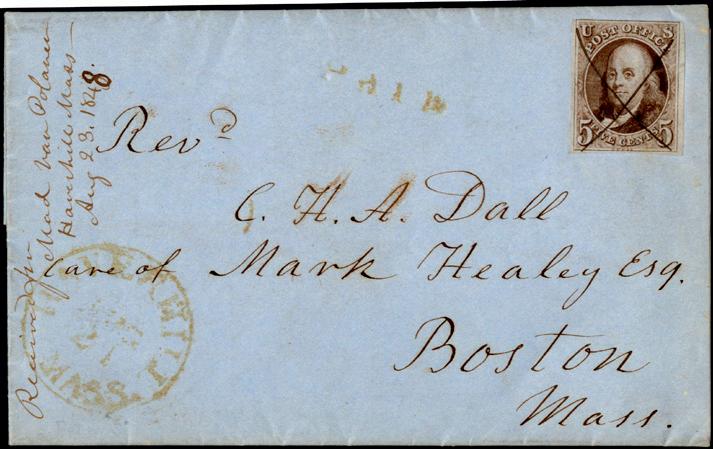 Received from
Mad Van Polanen
Haverhill Mass
Aug 23. 1848.
U S
POST OFFICE
5 FIVE CENTS 5
Revd
C. H. A. Dall
care of Mark Healey Esq.
Boston
Mass.
HAVERHILL
MASS.